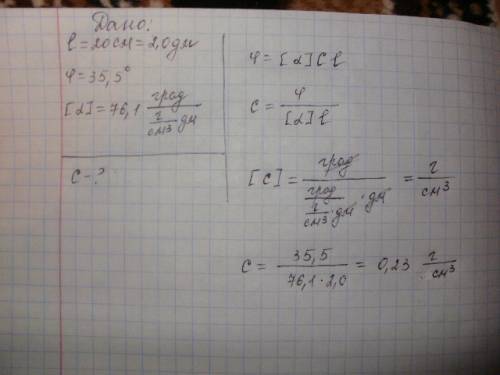 Дано:
l = 20см = 2,0дм
φ = 35,5°
[α] = 76,1 град / (г/см³ дм)
c - ?
φ = [α] C l
c = φ / [α] l
[c] = град / (град / (г/см³ · дм) · дм) = г/см³
c = 35,5 / 76,1 · 2,0 = 0,23 г/см³